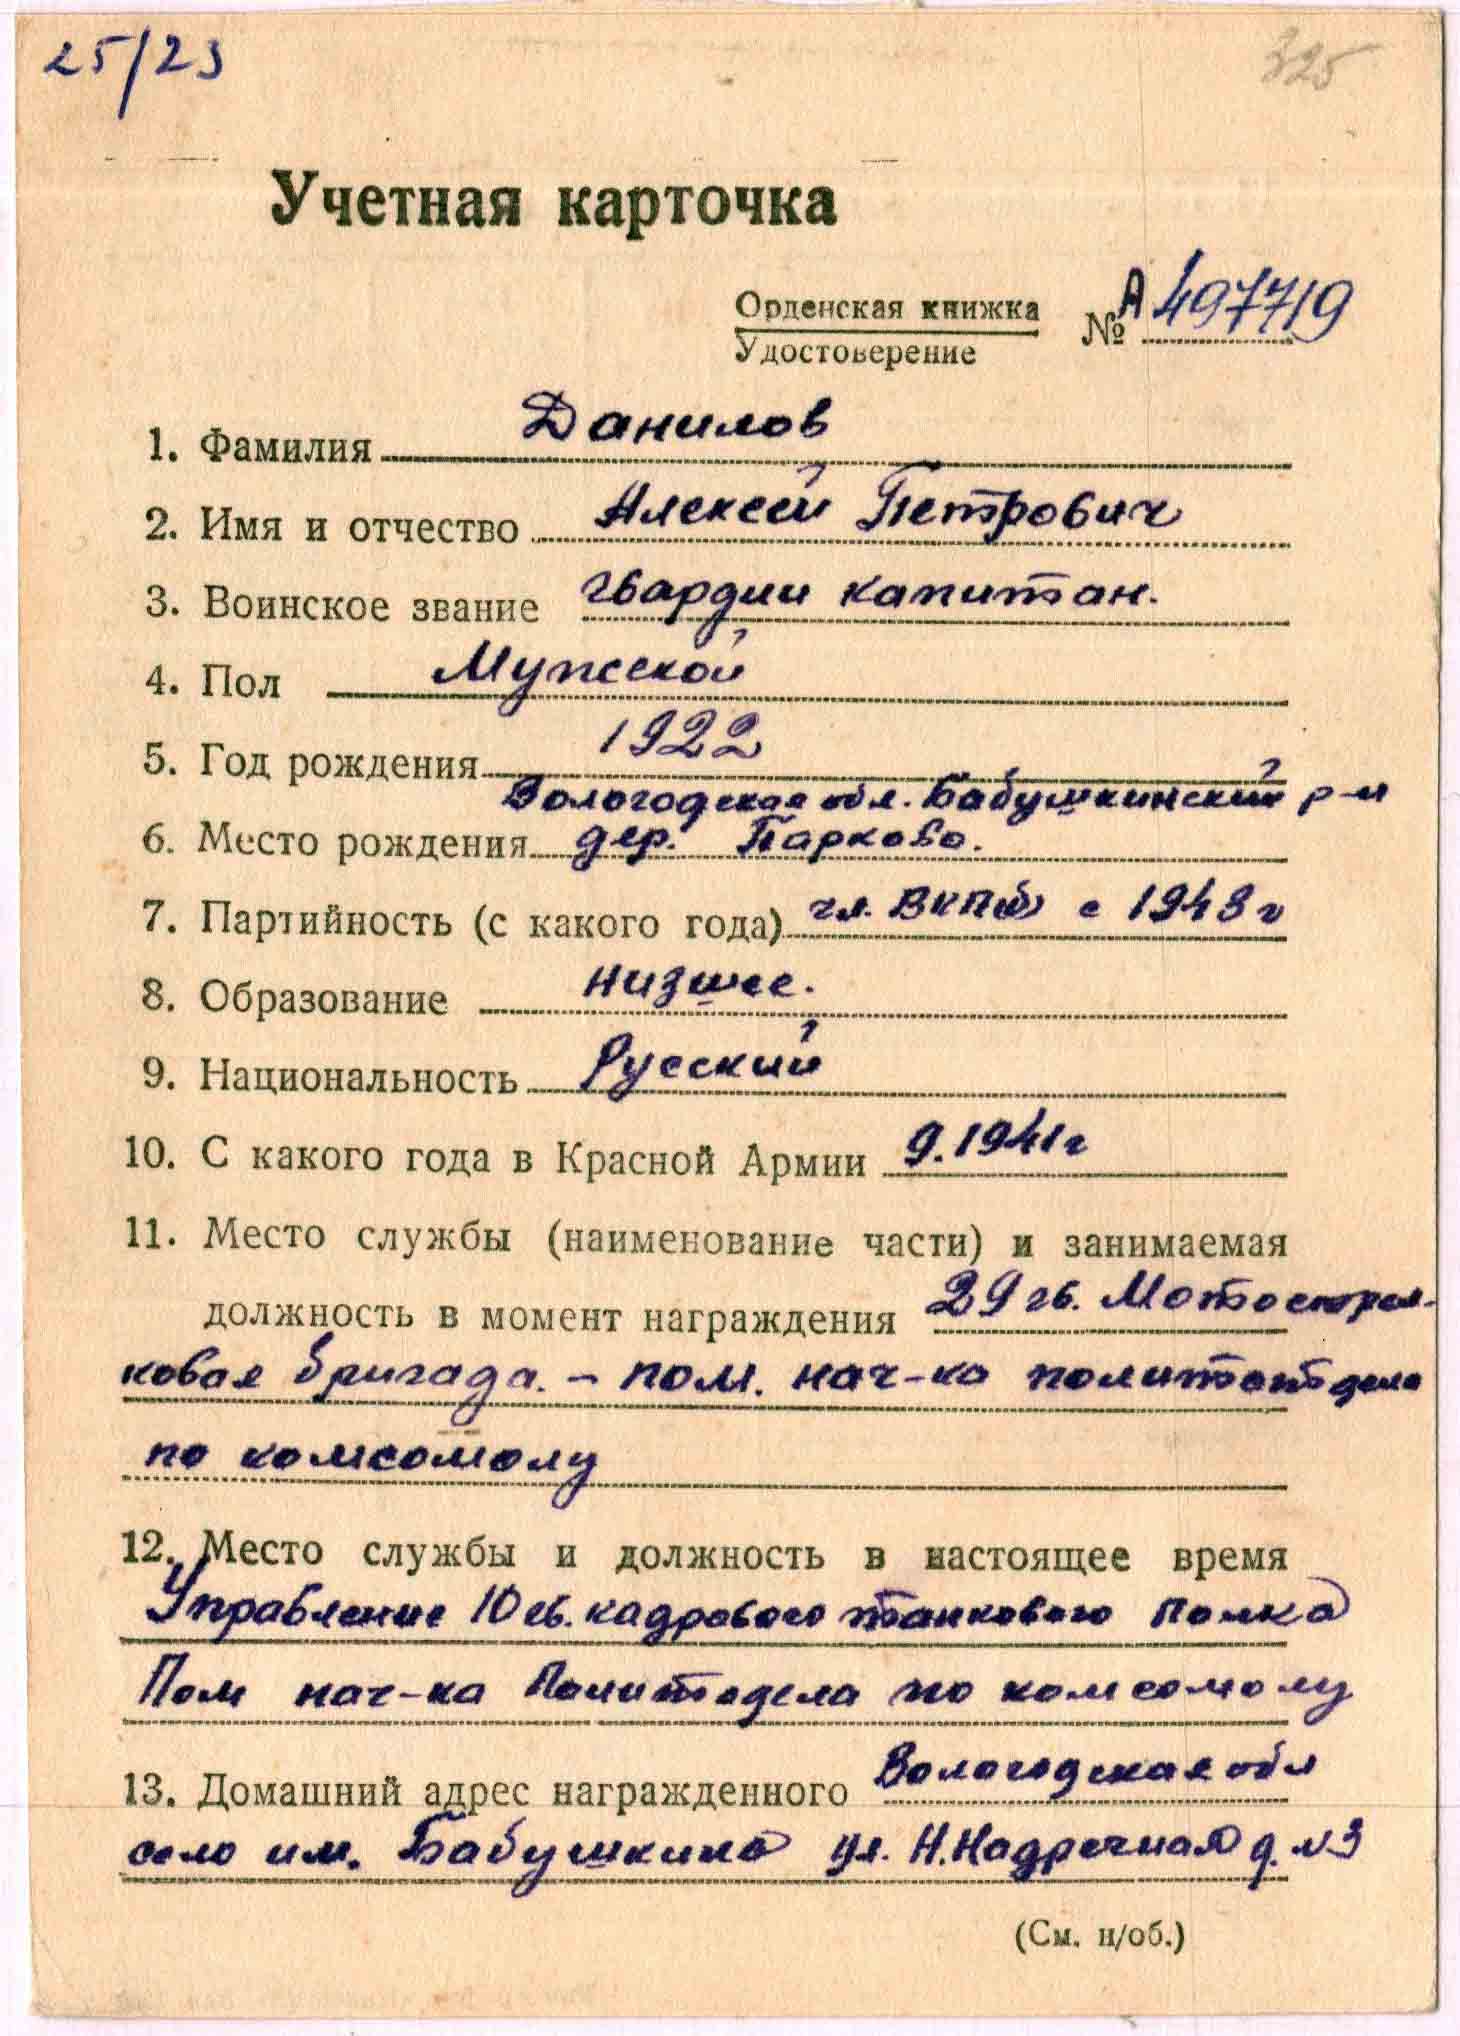 25/23
325
Учетная карточка
Орденская книжка
Удостоверение
№ А 497719
1. Фамилия Данилов
2. Имя и отчество Алексей Петрович
3. Воинское звание гвардии капитан.
4. Пол Мужской
5. Год рождения 1922
Вологодская обл. Бабушкинский р-н
6. Место рождения дер. Парково.
7. Партийность (с какого года) чл. ВКП(б) с 1943 г
8. Образование низшее.
9. Национальность Русский
10. С какого года в Красной Армии 9.1941г
11. Место службы (наименование части) и занимаемая
должность в момент награждения 29 гв. Мотострел-
ковая бригада. – пом. нач-ка политотдела
по комсомолу
12. Место службы и должность в настоящее время
Управление 10 гв. кадрового танкового полка
Пом нач-ка Политотдела по комсомолу
13. Домашний адрес награжденного Вологодская обл
село им. Бабушкина ул. Н. Надречная д. №3
(См. н/об.)